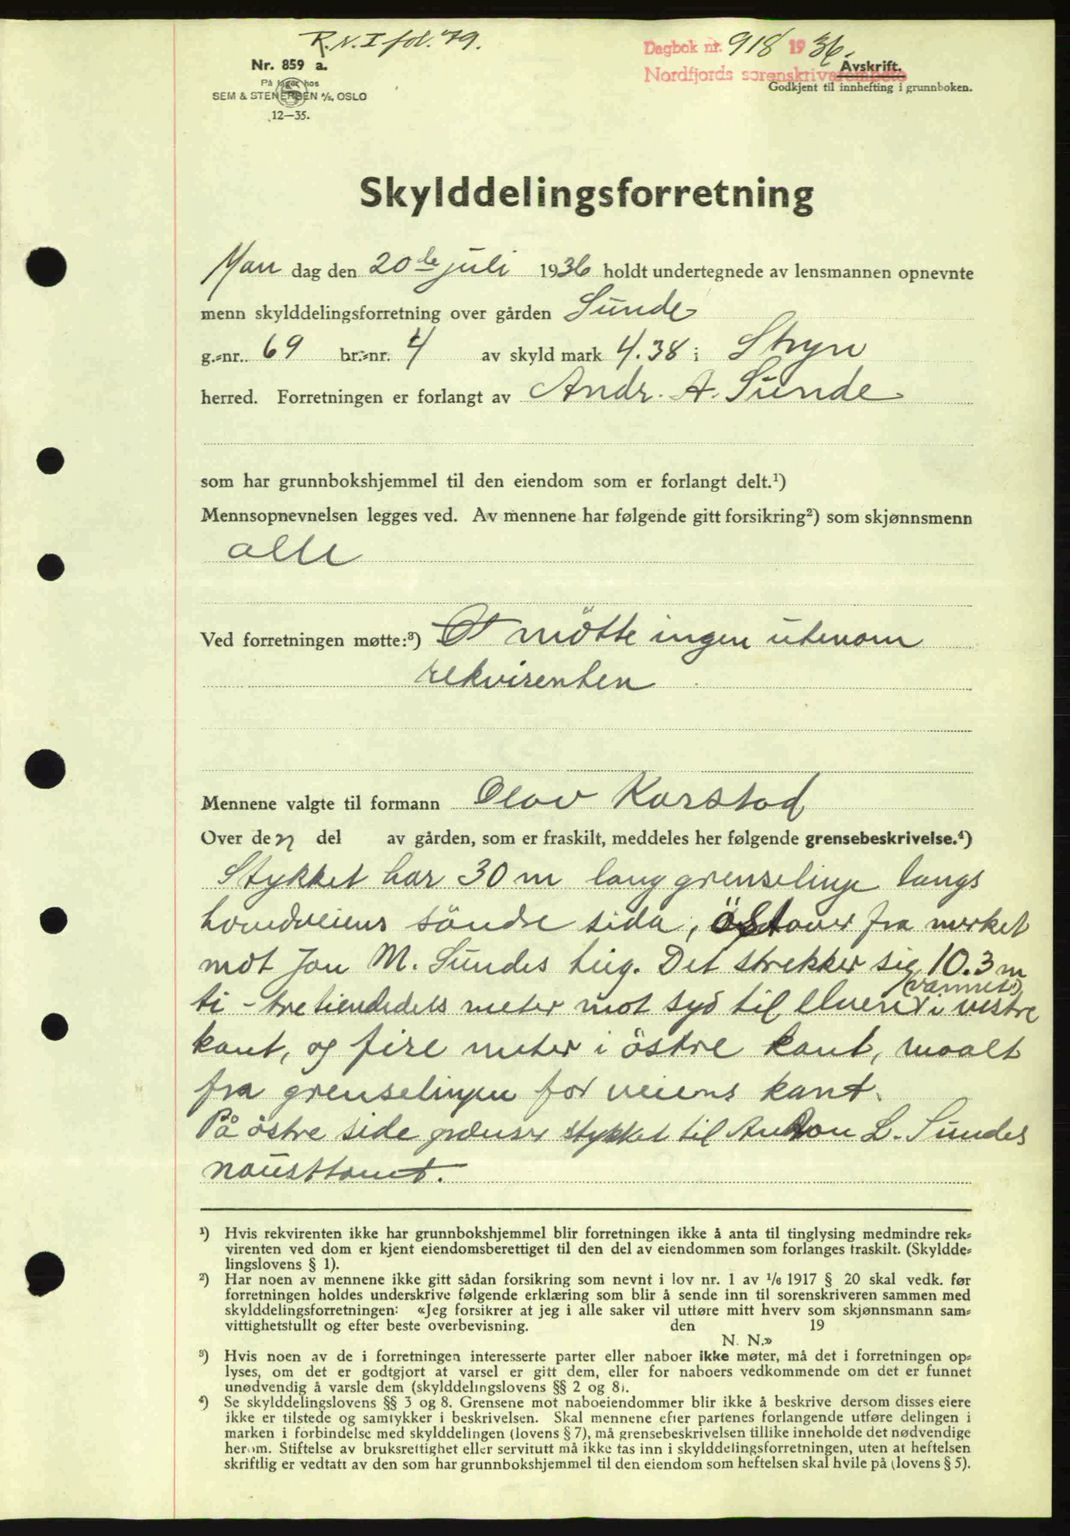 R.N.I fol. 79.
Dagbok nr. 918 1936.
Nr. 859 a.
Avskrift.
På lager hos
Nordfjords sorenskriverembete
Godkjent til innhefting i grunnboken.
SEM & STENERSEN A/S, OSLO
12—35.
Skylddelingsforretning
Man dag den 20de juli 1936 holdt undertegnede av lensmannen opnevnte
menn skylddelingsforretning over gården Sunde
g.-nr. 69 br.-nr. 4 av skyld mark 4.38 i Stryn
herred. Forretningen er forlangt av Andr. A. Sunde
som har grunnbokshjemmel til den eiendom som er forlangt delt.¹)
Mennsopnevnelsen legges ved. Av mennene har følgende gitt forsikring²) som skjønnsmenn
alle
Ved forretningen møtte:³) Et mötte ingen utenom
rekvirenten
Mennene valgte til formann Olav Karstad
Over den del av gården, som er fraskilt, meddeles her følgende grensebeskrivelse.⁴)
Stykket har 30 m lang grenselinje langs
hovedveiens söndre side, östover fra merket
mot Jon M. Sundes teig. Det strekker sig 10.3 m
(vannet)
ti - tre tiendedels meter mot syd til elven i vestre
kant, og fire meter i östre kant, maalt
fra grenselinjen for veiens kant.
På östre side grenser stykket til Anton L. Sundes
nausttomt.
¹) Hvis rekvirenten ikke har grunnbokshjemmel blir forretningen ikke å anta til tinglysing medmindre rek-
virenten ved dom er kjent eiendomsberettiget til den del av eiendommen som forlanges fraskilt. (Skyldde-
lingslovens § 1).
²) Har noen av mennene ikke gitt sådan forsikring som nevnt i lov nr. 1 av ¹/₆ 1917 § 20 skal vedk. før
forretningen holdes underskrive følgende erklæring som blir å sende inn til sorenskriveren sammen med
skylddelingsforretningen: «Jeg forsikrer at jeg i alle saker vil utføre mitt hverv som skjønnsmann sam-
vittighetsfullt og efter beste overbevisning. den 19
N. N.»
³) Hvis noen av de i forretningen interesserte parter eller naboer ikke møter, må det i forretningen op-
lyses, om det er godtgjort at varsel er gitt dem, eller for naboers vedkommende om det er funnet
unødvendig å varsle dem (skylddelingslovens §§ 2 og 8).
⁴) Se skylddelingslovens §§ 3 og 8. Grensene mot naboeiendommer blir ikke å beskrive dersom disses eiere
ikke er tilstede og samtykker i beskrivelsen. Skal mennene efter partenes forlangende utføre delingen i
marken i forbindelse med skylddelingen (lovens § 7), må grensebeskrivelsen tillike inneholde det nødvendige
herom. Stiftelse av bruksrettighet eller servitutt må ikke tas inn i skylddelingsforretningen, uten at heftelsen
skriftlig er vedtatt av den som har grunnbokshjemmel til den eiendom som heftelsen skal hvile på (lovens § 5).